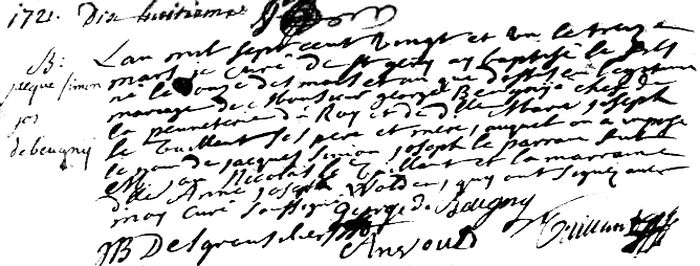 1721. Dix huitieme
B:
jacque simon
jos
debeugny
L'an mil sept cent vingt et un le treize
mars je Curé de St gery ay baptisé le fils
né le onze des mois et an que dessus en legitime
mariage de Monsieur george Beugny chef de
la penneterie du Roy et de d.lle Marie joseph
le Guillent ses pere et mere, auquel on a imposé
le nom de jacques Simon joseph le parrain fut
M. Nicolas le Guillent et la marraine
d.lle Anne joseph Wolden, quy ont signez avec
moy Curé soussigné George de Beugny
JB Desgreuseliers